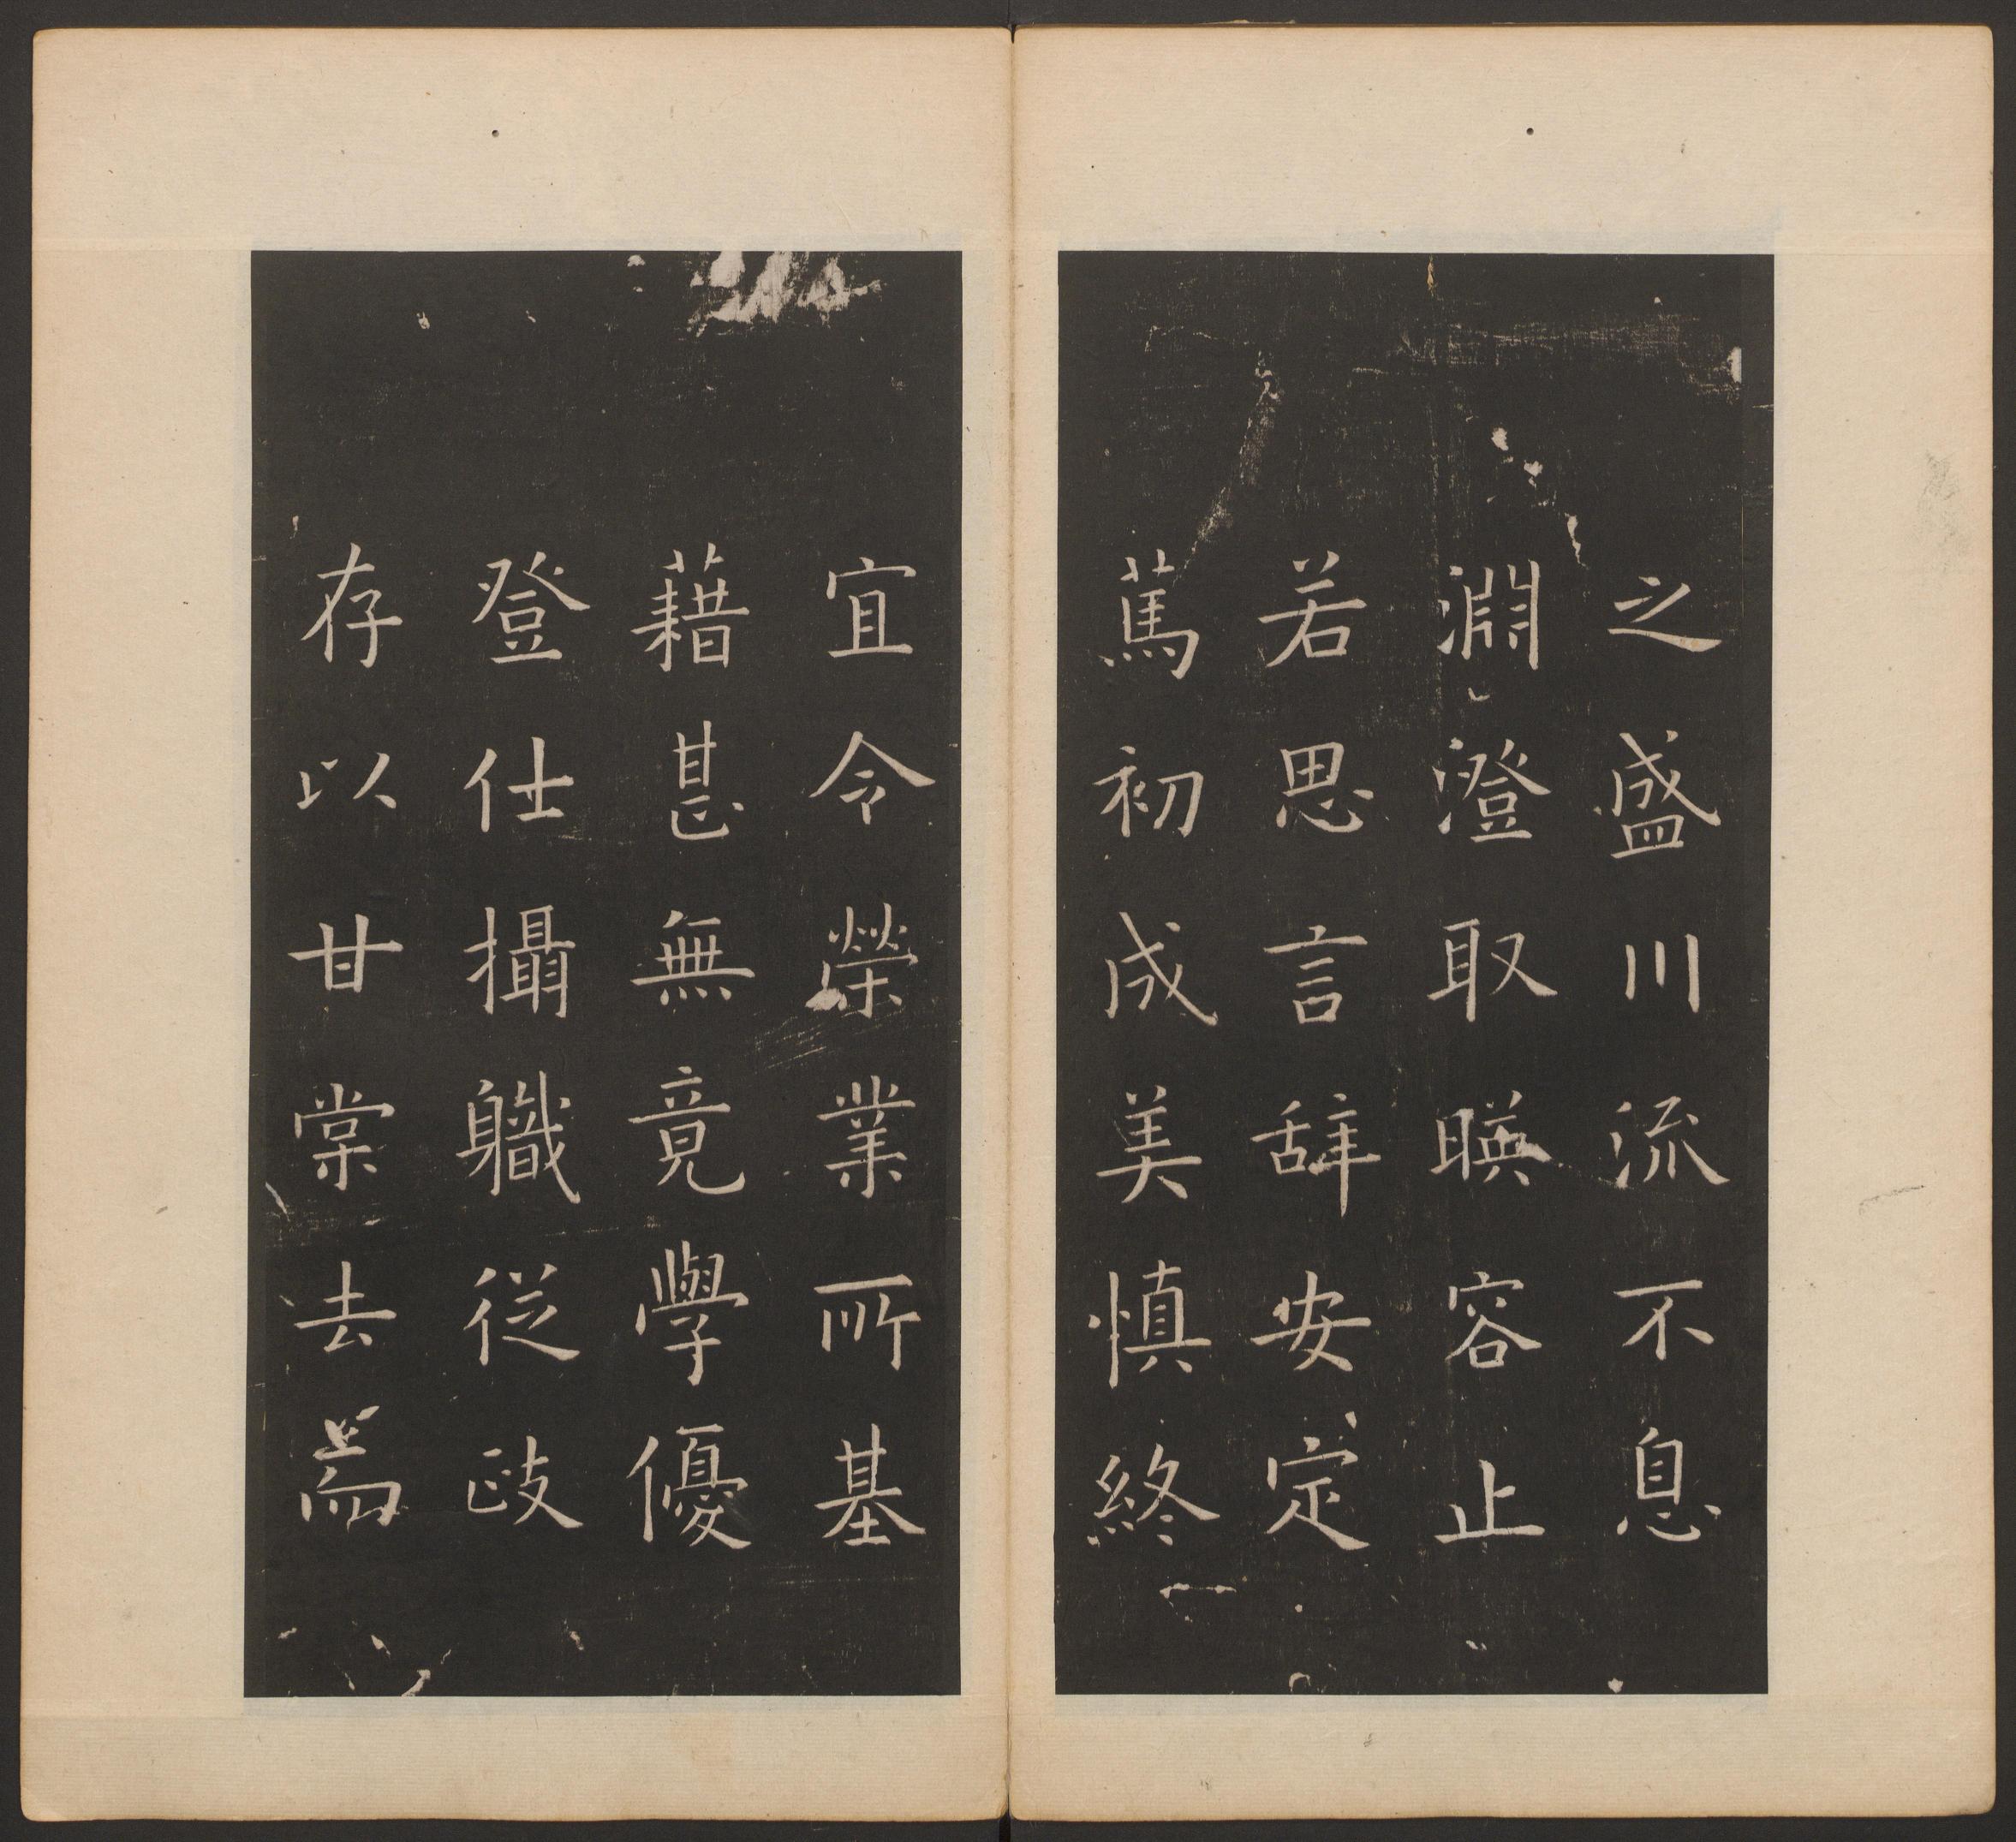 之盛川流不息
淵澄取暎容止
若思言辝安定
萬初成美慎終
宜令榮業所基
藉甚無竟學優
登仕攝職從政
存以甘棠去而